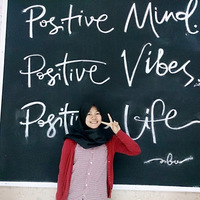 Positive Mind.
Positive Vibes,
Positive Life